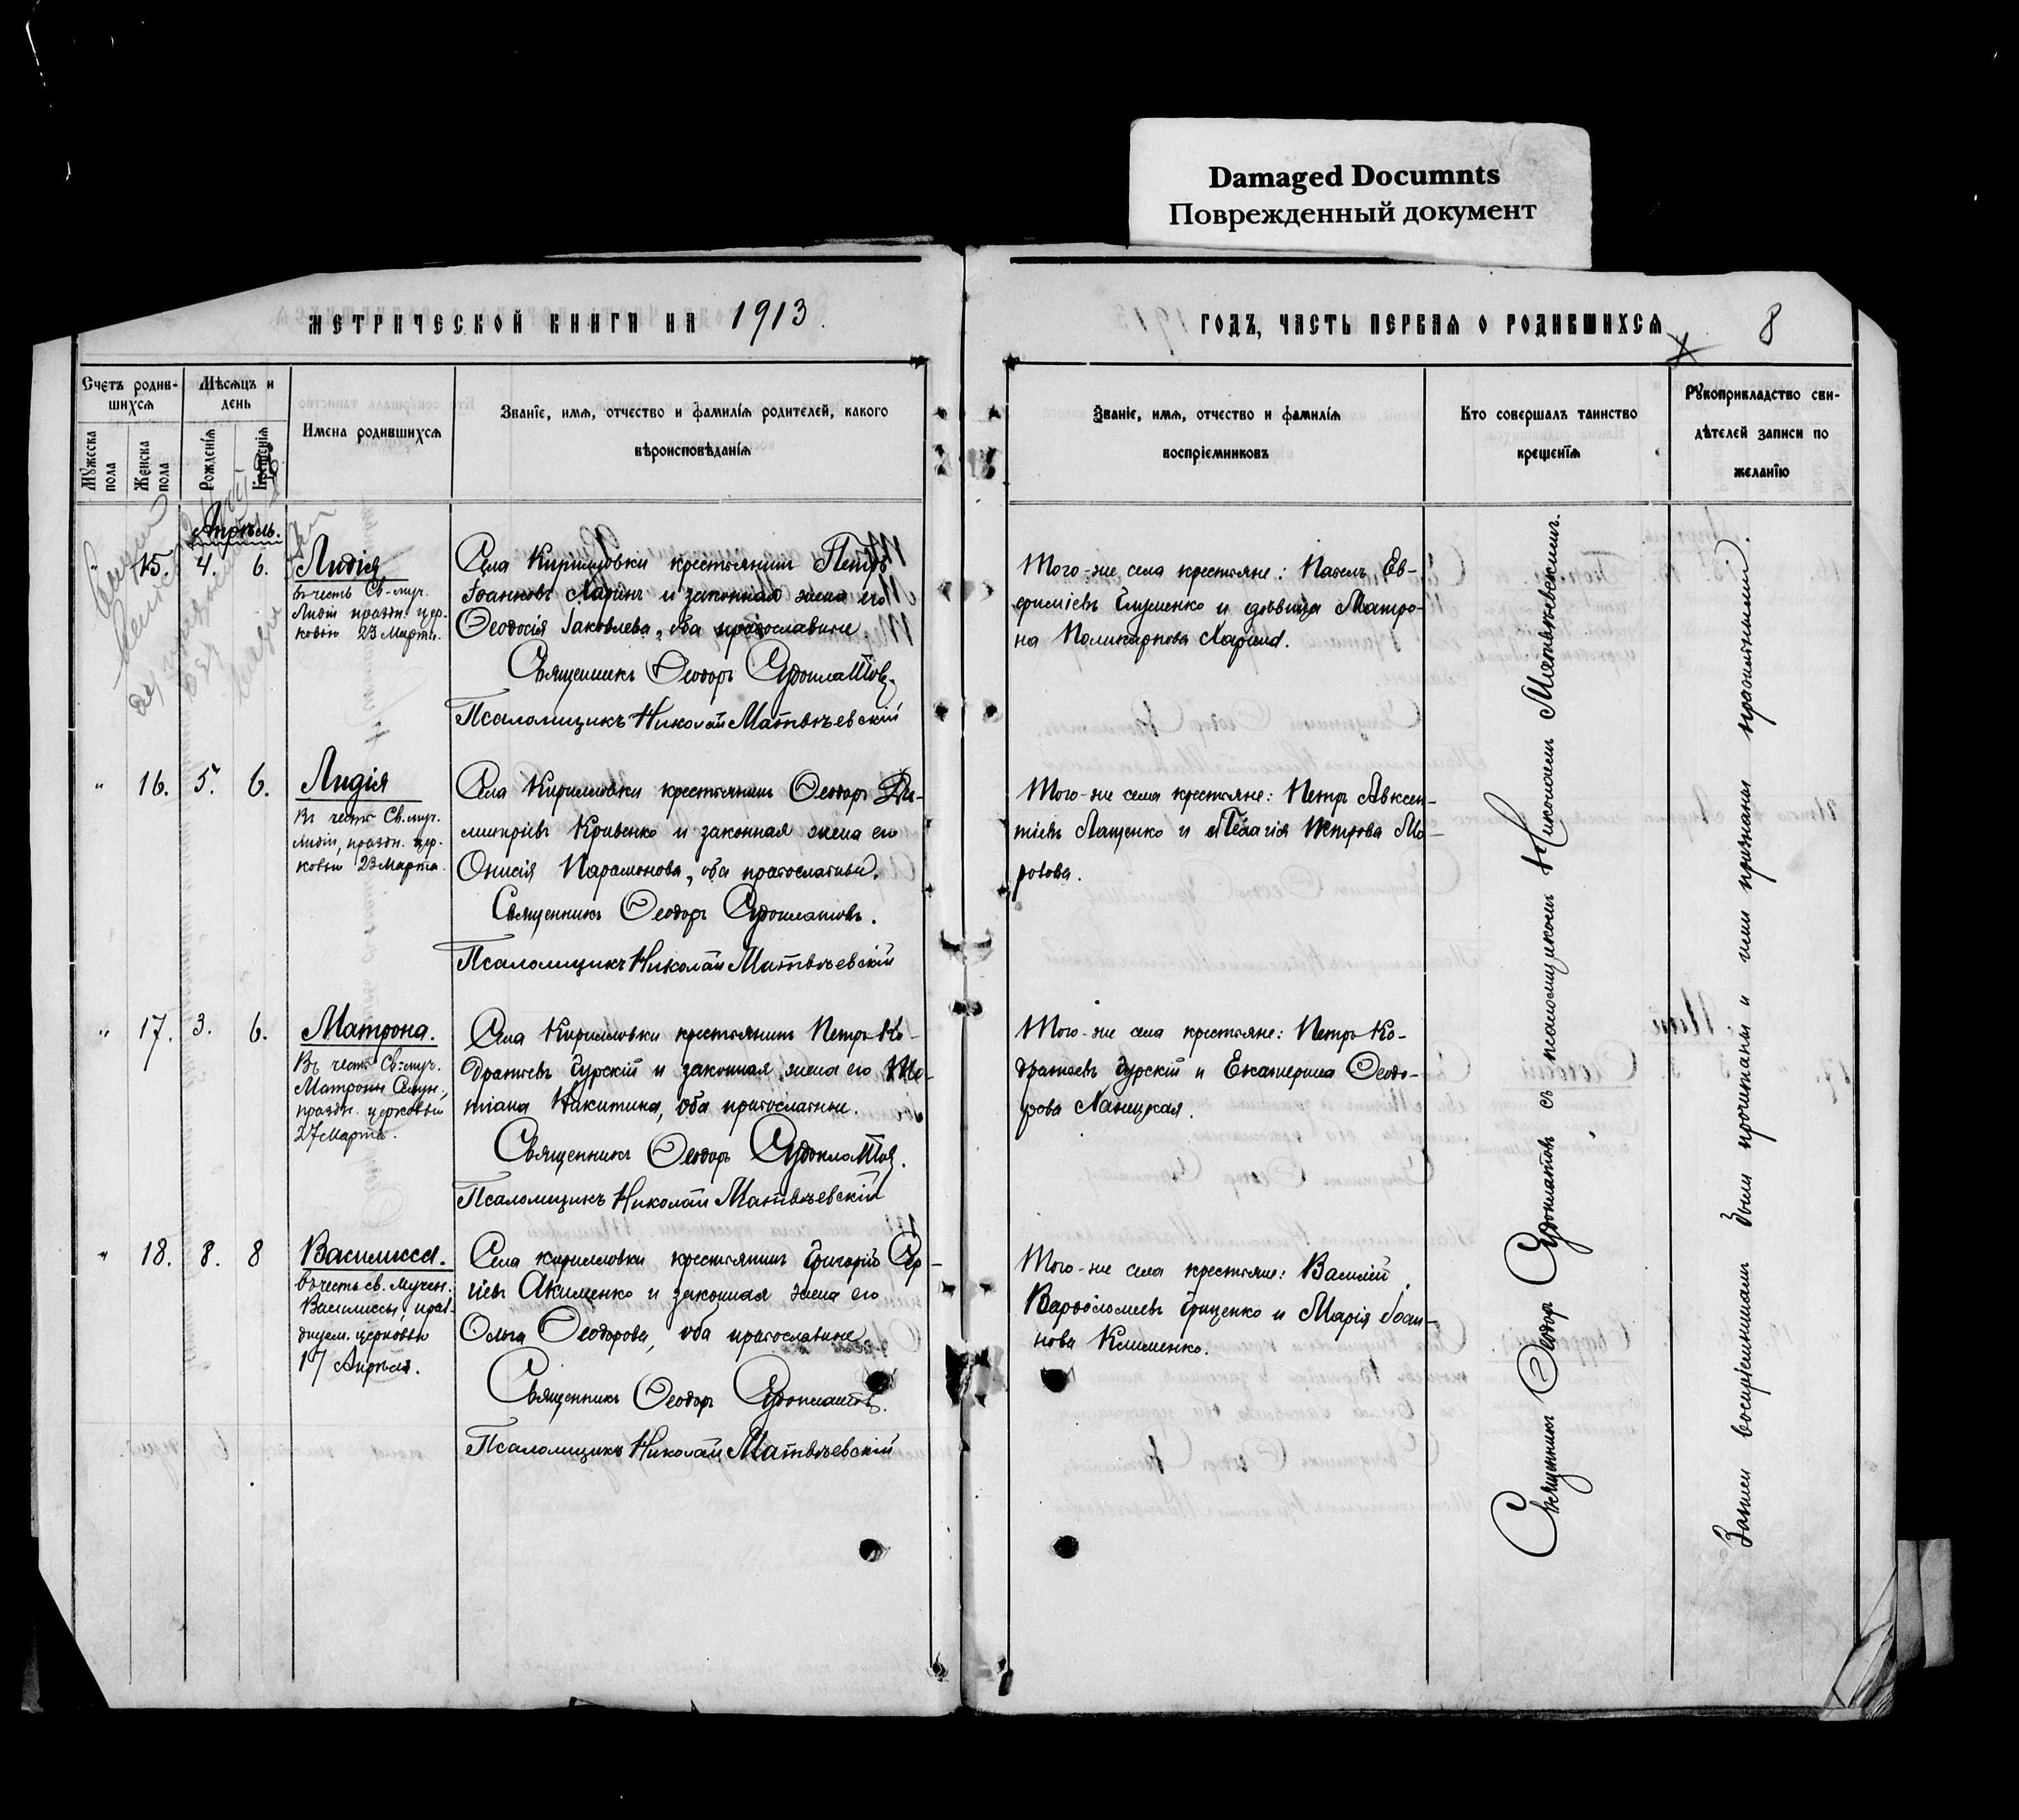 Damaged Documnts
Поврежденный документ
МЕТРИЧЕСКОЙ КНИГИ НА 1913
ГОДЪ, ЧАСТЬ ПЕРВАЯ О РОДИВШИХСЯ
8
Счетъ родив-
шихся
Мужеска
пола
Женска
пола
Мѣсяцъ и
день
Рожденія
Крещенія
Имена родившихся
Званіе, имя, отчество и фамилія родителей, какого
вѣроисповѣданія
Званіе, имя, отчество и фамилія
воспріемниковъ
Кто совершалъ таинство
крещенія
Рукоприкладство сви-
дѣтелей записи по
желанію
Апрѣль.
" 15. 4. 6.
Лидія
въ честь Св. муч.
Лидіи праздн. цер-
ковью 23 Марта.
Села Кирилловки крестьянинъ Петръ
Іоанновъ Ларинъ и законная жена его
Ѳеодосія Іаковлева, оба православные
Священникъ Ѳеодоръ
Псаломщикъ Николай Матвѣевскій
Того-же села крестьяне: Павелъ Ев-
фиміевъ Глущенко и дѣвица Матро-
на Поликарпова Ларина.
" 16. 5. 6.
Лидія
Въ честь Св. муч.
Лидіи, праздн. цер-
ковью 23 Марта.
Села Кирилловки крестьянинъ Ѳеодоръ Ди-
митріевъ Кривенко и законная жена его
Онисія Парамонова, оба православные.
Священникъ Ѳеодоръ
Псаломщикъ Николай Матвѣевскій
Того-же села крестьяне: Петръ Авксен-
тіевъ Лащенко и Пелагія Петрова Мо-
ротова.
" 17. 3. 6.
Матрона.
Въ честь Св. муч.
Матроны Селун.,
праздн. церковью
27 Марта.
Села Кирилловки крестьянинъ Петръ Ко-
дратьевъ Гурскій и законная жена его
Никитина, оба православные.
Священникъ Ѳеодоръ
Псаломщикъ Николай Матвѣевскій
Того-же села крестьяне: Петръ Ко-
дратьевъ Гурскій и Екатерина Ѳеодо-
рова
" 18. 8. 8
Василисса.
въ честь св. мучен.
Василиссы, празд-
дуем. церковью
17 Апрѣля.
Села Кирилловки крестьянинъ Григорій Сер-
гіевъ Акименко и законная жена его
Ольга Ѳеодорова, оба православные
Священникъ Ѳеодоръ
Псаломщикъ Николай Матвѣевскій
Того-же села крестьяне: Василій
Варѳоломеевъ Гриценко и Марія Іоан-
нова Клименко.
Священникъ Ѳеодоръ съ псаломщикомъ Николаемъ Матвѣевскимъ.
Записи воспріемниками были прочитаны и ими признаны правильными.